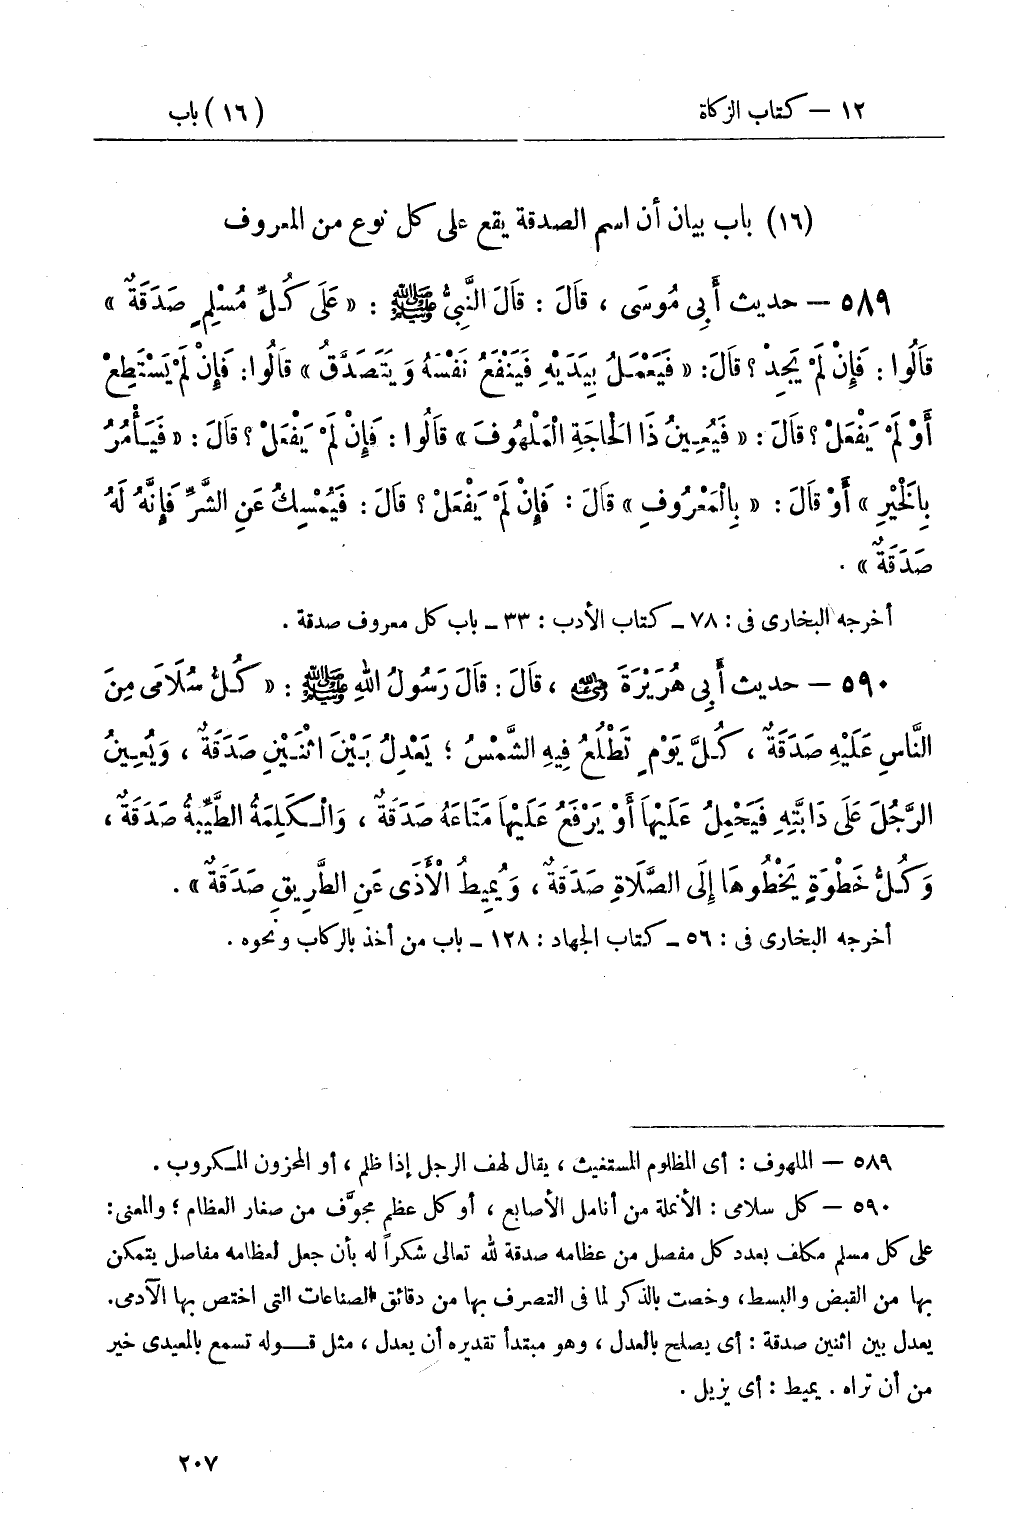 ١٢ – كتاب الزكاة
(١٦) باب
(١٦) باب بيان أن اسم الصدقة يقع على كل نوع من المعروف
٥٨٩ – حديث أَبِي مُوسَى ، قَالَ : قَالَ النَّبِيُّ ﷺ : « عَلَى كُلِّ مُسْلِمٍ صَدَقَةٌ »
قَالُوا : فَإِنْ لَمْ يَجِدْ ؟ قَالَ : « فَيَعْمَلُ بِيَدَيْهِ فَيَنْفَعُ نَفْسَهُ وَيَتَصَدَّقُ » قَالُوا : فَإِنْ لَمْ يَسْتَطِعْ
أَوْ لَمْ يَفْعَلْ ؟ قَالَ : « فَيُعِينُ ذَا الْحَاجَةِ الْمَلْهُوفَ » قَالُوا : فَإِنْ لَمْ يَفْعَلْ ؟ قَالَ : « فَيَأْمُرُ
بِالْخَيْرِ » أَوْ قَالَ : « بِالْمَعْرُوفِ » قَالَ : فَإِنْ لَمْ يَفْعَلْ ؟ قَالَ : فَيُمْسِكُ عَنِ الشَّرِّ فَإِنَّهُ لَهُ
صَدَقَةٌ » .
أخرجه البخارى فى : ٧٨ ـ كتاب الأدب : ٣٣ ـ باب كل معروف صدقة .
٥٩٠ – حديث أَبِي هُرَيْرَةَ رضي الله عنه ، قَالَ : قَالَ رَسُولُ اللهِ ﷺ : « كُلُّ سُلَامَى مِنَ
النَّاسِ عَلَيْهِ صَدَقَةٌ ، كُلَّ يَوْمٍ تَطْلُعُ فِيهِ الشَّمْسُ ؛ يَعْدِلُ بَيْنَ اثْنَيْنِ صَدَقَةٌ ، وَيُعِينُ
الرَّجُلَ عَلَى دَابَّتِهِ فَيَحْمِلُ عَلَيْهَا أَوْ يَرْفَعُ عَلَيْهَا مَتَاعَهُ صَدَقَةٌ ، وَالْكَلِمَةُ الطَّيِّبَةُ صَدَقَةٌ ،
وَكُلُّ خَطْوَةٍ يَخْطُوهَا إِلَى الصَّلَاةِ صَدَقَةٌ ، وَيُمِيطُ الْأَذَى عَنِ الطَّرِيقِ صَدَقَةٌ » .
أخرجه البخارى فى : ٥٦ ـ كتاب الجهاد : ١٢٨ ـ باب من أخذ بالركاب ونحوه .
٥٨٩ – الملهوف : أى المظلوم المستغيث ، يقال لهف الرجل إذا ظلم ، أو المحزون المكروب .
٥٩٠ – كل سلامى : الأنملة من أنامل الأصابع ، أو كل عظم مجوَّف من صغار العظام ؛ والمعنى :
على كل مسلم مكلف بعدد كل مفصل من عظامه صدقة لله تعالى شكراً له بأن جعل لعظامه مفاصل يتمكن
بها من القبض والبسط، وخصت بالذكر لما فى التصرف بها من دقائق الصناعات التى اختص بها الآدمى.
يعدل بين اثنين صدقة : أى يصلح بالعدل ، وهو مبتدأ تقديره أن يعدل ، مثل قوله تسمع بالمعيدى خير
من أن تراه . يميط : أى يزيل .
٢٠٧